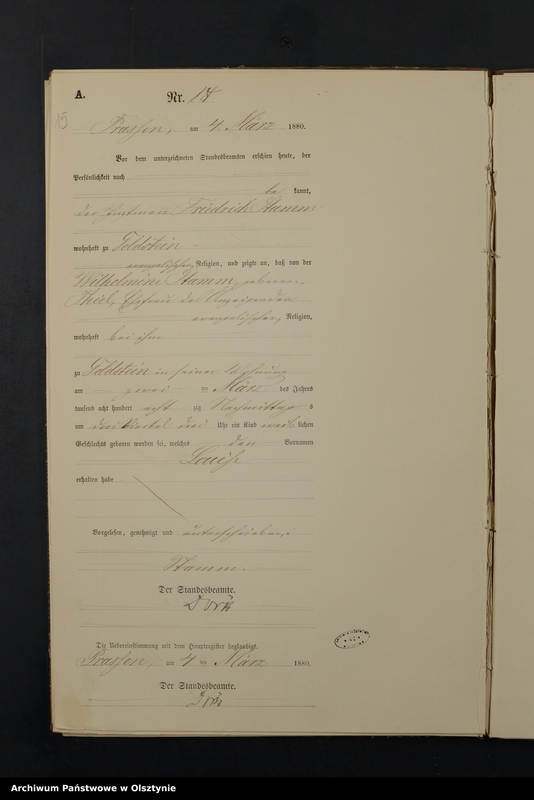 A.
Nr. 14
15
Prassen, am 4. März 1880.
Vor dem unterzeichneten Standesbeamten erschien heute, der
Persönlichkeit nach
be kannt,
der Friedrich Stamm
wohnhaft zu Töldstein
evangelischer Religion, und zeigte an, daß von der
Wilhelmine Stamm, geborenen
Thiel, Ehefrau des Anzeigenden
evangelischer Religion,
wohnhaft bei ihm
zu Töldstein in seiner Wohnung
am zwei ten März des Jahres
tausend acht hundert acht zig Nachmittag s
um drei Viertel drei Uhr ein Kind weib lichen
Geschlechts geboren worden sei, welches den Vornamen
Louise
erhalten habe
Vorgelesen, genehmigt und unterschrieben.
Stamm.
Der Standesbeamte.
Die Uebereinstimmung mit dem Hauptregister beglaubigt.
Prassen, am 4 ten März 1880.
Der Standesbeamte.
Archiwum Państwowe w Olsztynie